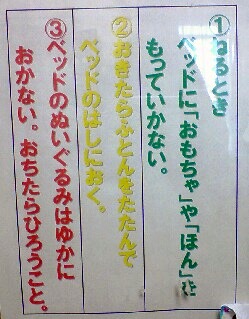 ①ねるとき
ベッドに「おもちゃ」や「ほん」は
もっていかない。
②おきたらふとんをたたんで
ベッドのはしにおく。
③ベッドのぬいぐるみはゆかに
おかない。おちたらひろうこと。